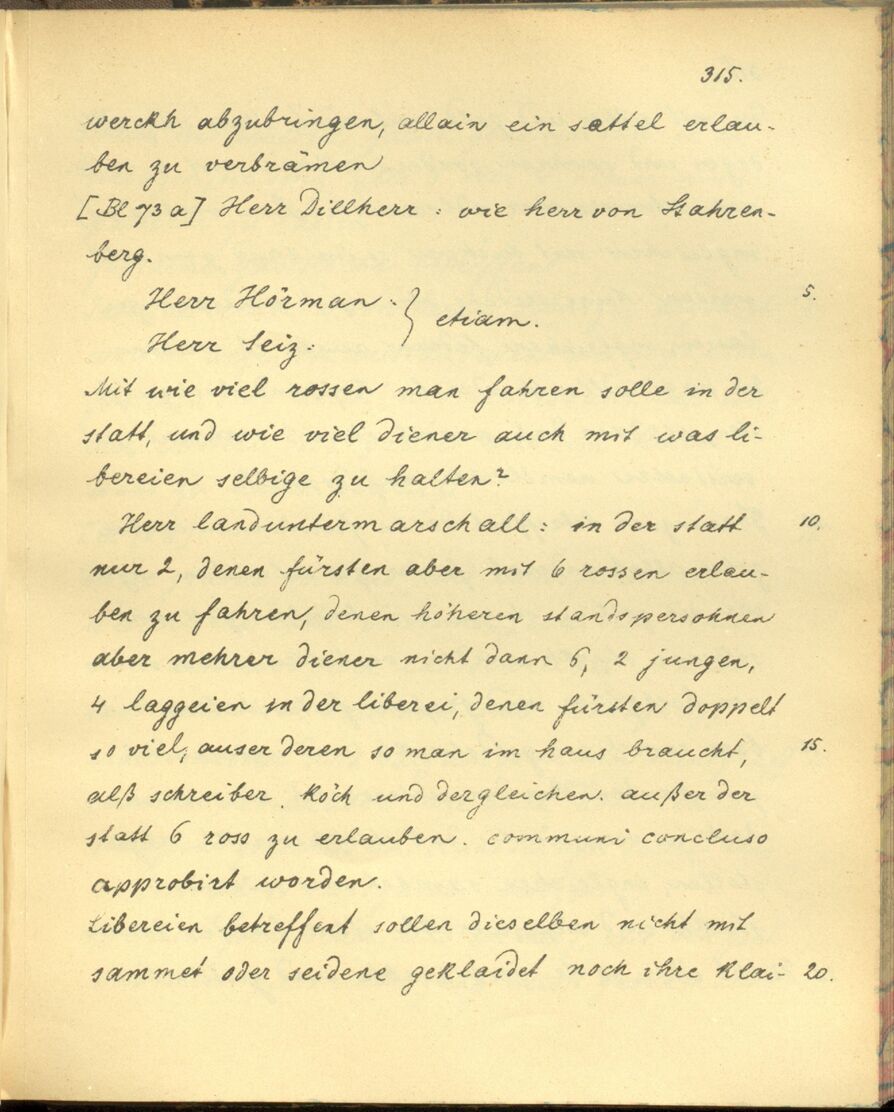 315.
werckh abzubringen, allain ein sattel erlau-
ben zu verbrämen
[Bl 73a] Herr Dillherr: wie herr von Stahren-
berg.
Herr Hörman: 5.
} etiam.
Herr Seiz:
Mit wie viel rossen man fahren solle in der
statt, und wie viel diener auch mit was li-
bereien selbige zu halten?
Herr landuntermarschall: in der statt 10.
nur 2, denen fürsten aber mit 6 rossen erlau-
ben zu fahren, denen höheren standspersohnen
aber mehrer diener nicht dann 6, 2 jungen,
4 laggeien in der liberei, denen fürsten doppelt
so viel, auser deren so man im haus braucht, 15.
alß schreiber, köch und dergleichen. außer der
statt 6 ross zu erlauben. communi concluso
approbirt worden.
Libereien betreffent sollen dieselben nicht mit
sammet oder seidene geklaidet noch ihre klai- 20.